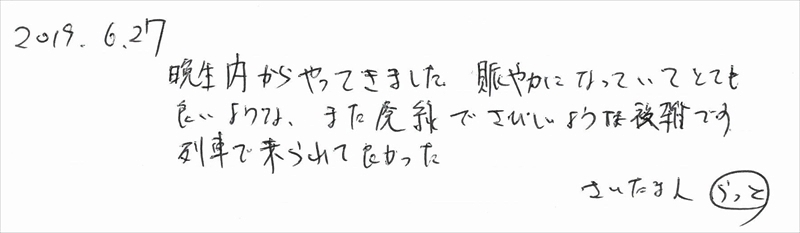 2019.6.27
晩生内からやってきました 賑やかになっていてとても
良いような、また廃線でさびしいような複雑です
列車で来られて良かった
さいたま人 らっと